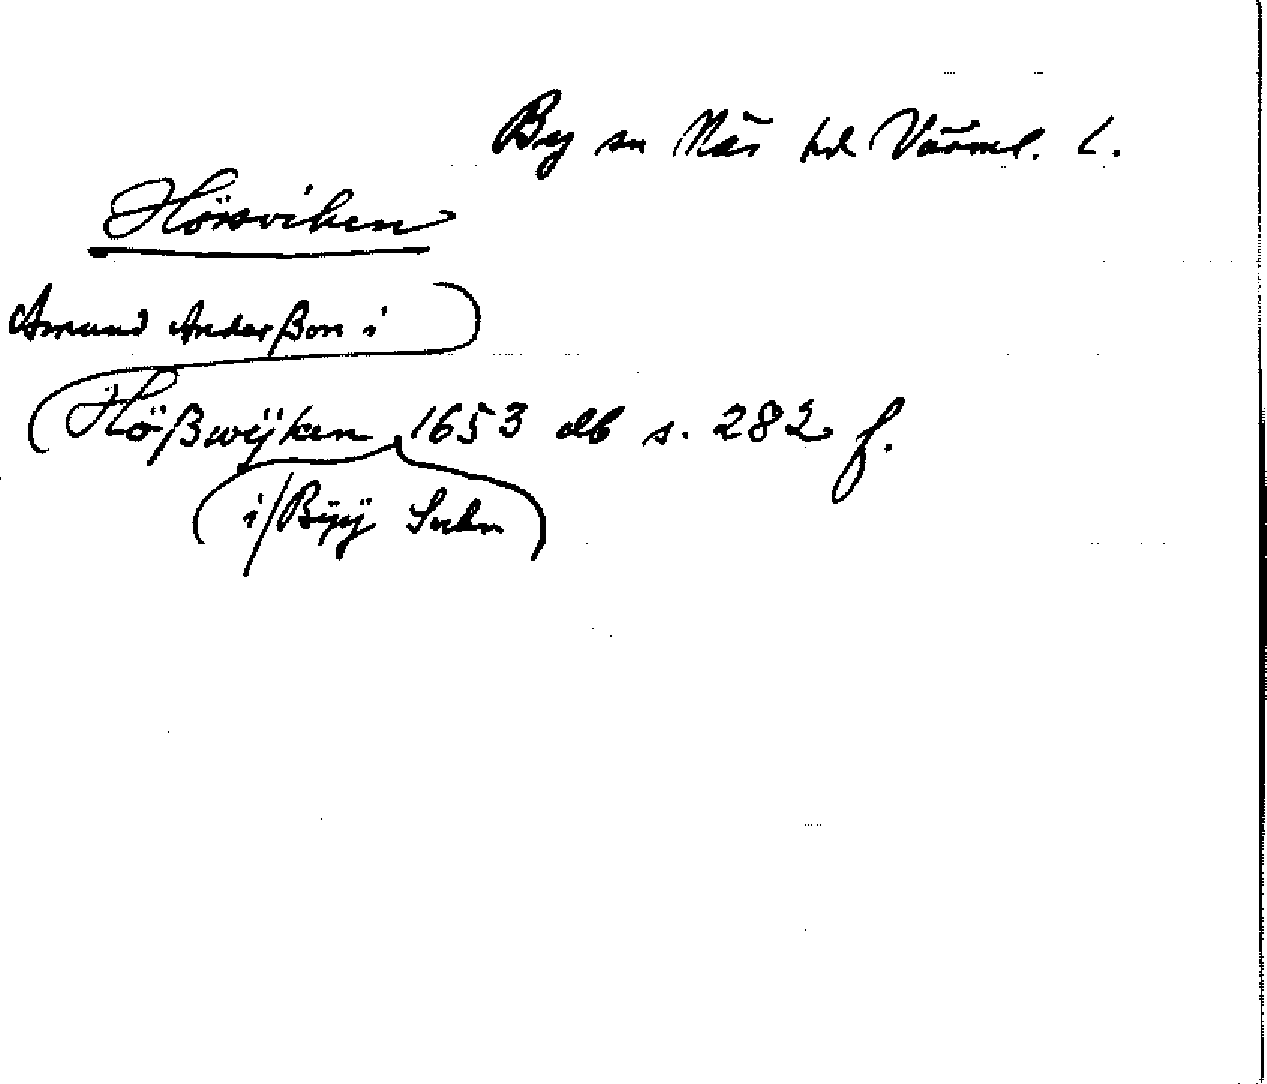 By sn Näs hd Värml. l.
Hörsviken
Amund Anderßon i
Hößwÿken 1653 db s. 282 f.
i/Bÿÿ Sukn